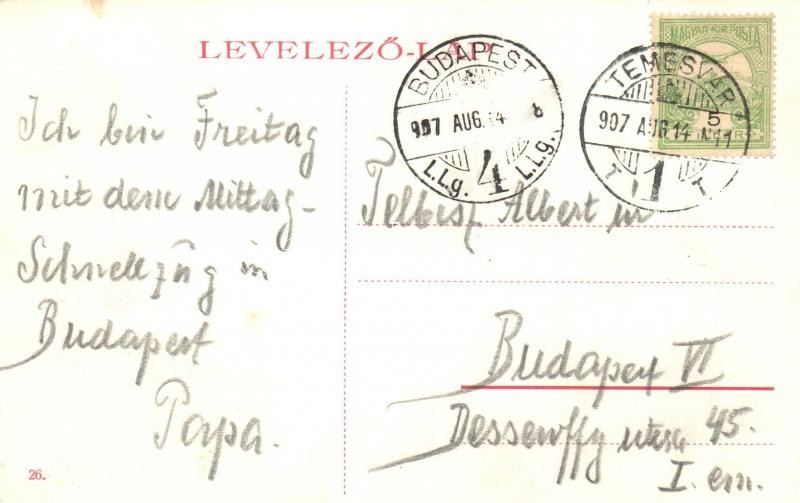 LEVELEZŐ-LAP
MAGYAR KIR. POSTA
5
BUDAPEST
907 AUG. 14
I.Lg. 4 I.Lg.
TEMESVÁR
907 AUG. 14 N11
T 1 T
Ich bin Freitag
mit dem Mittag-
Schnellzug in
Budapest
Papa.
Telbisz Albert úr
Budapest VI
Dessewffy utca 45.
I. em.
26.